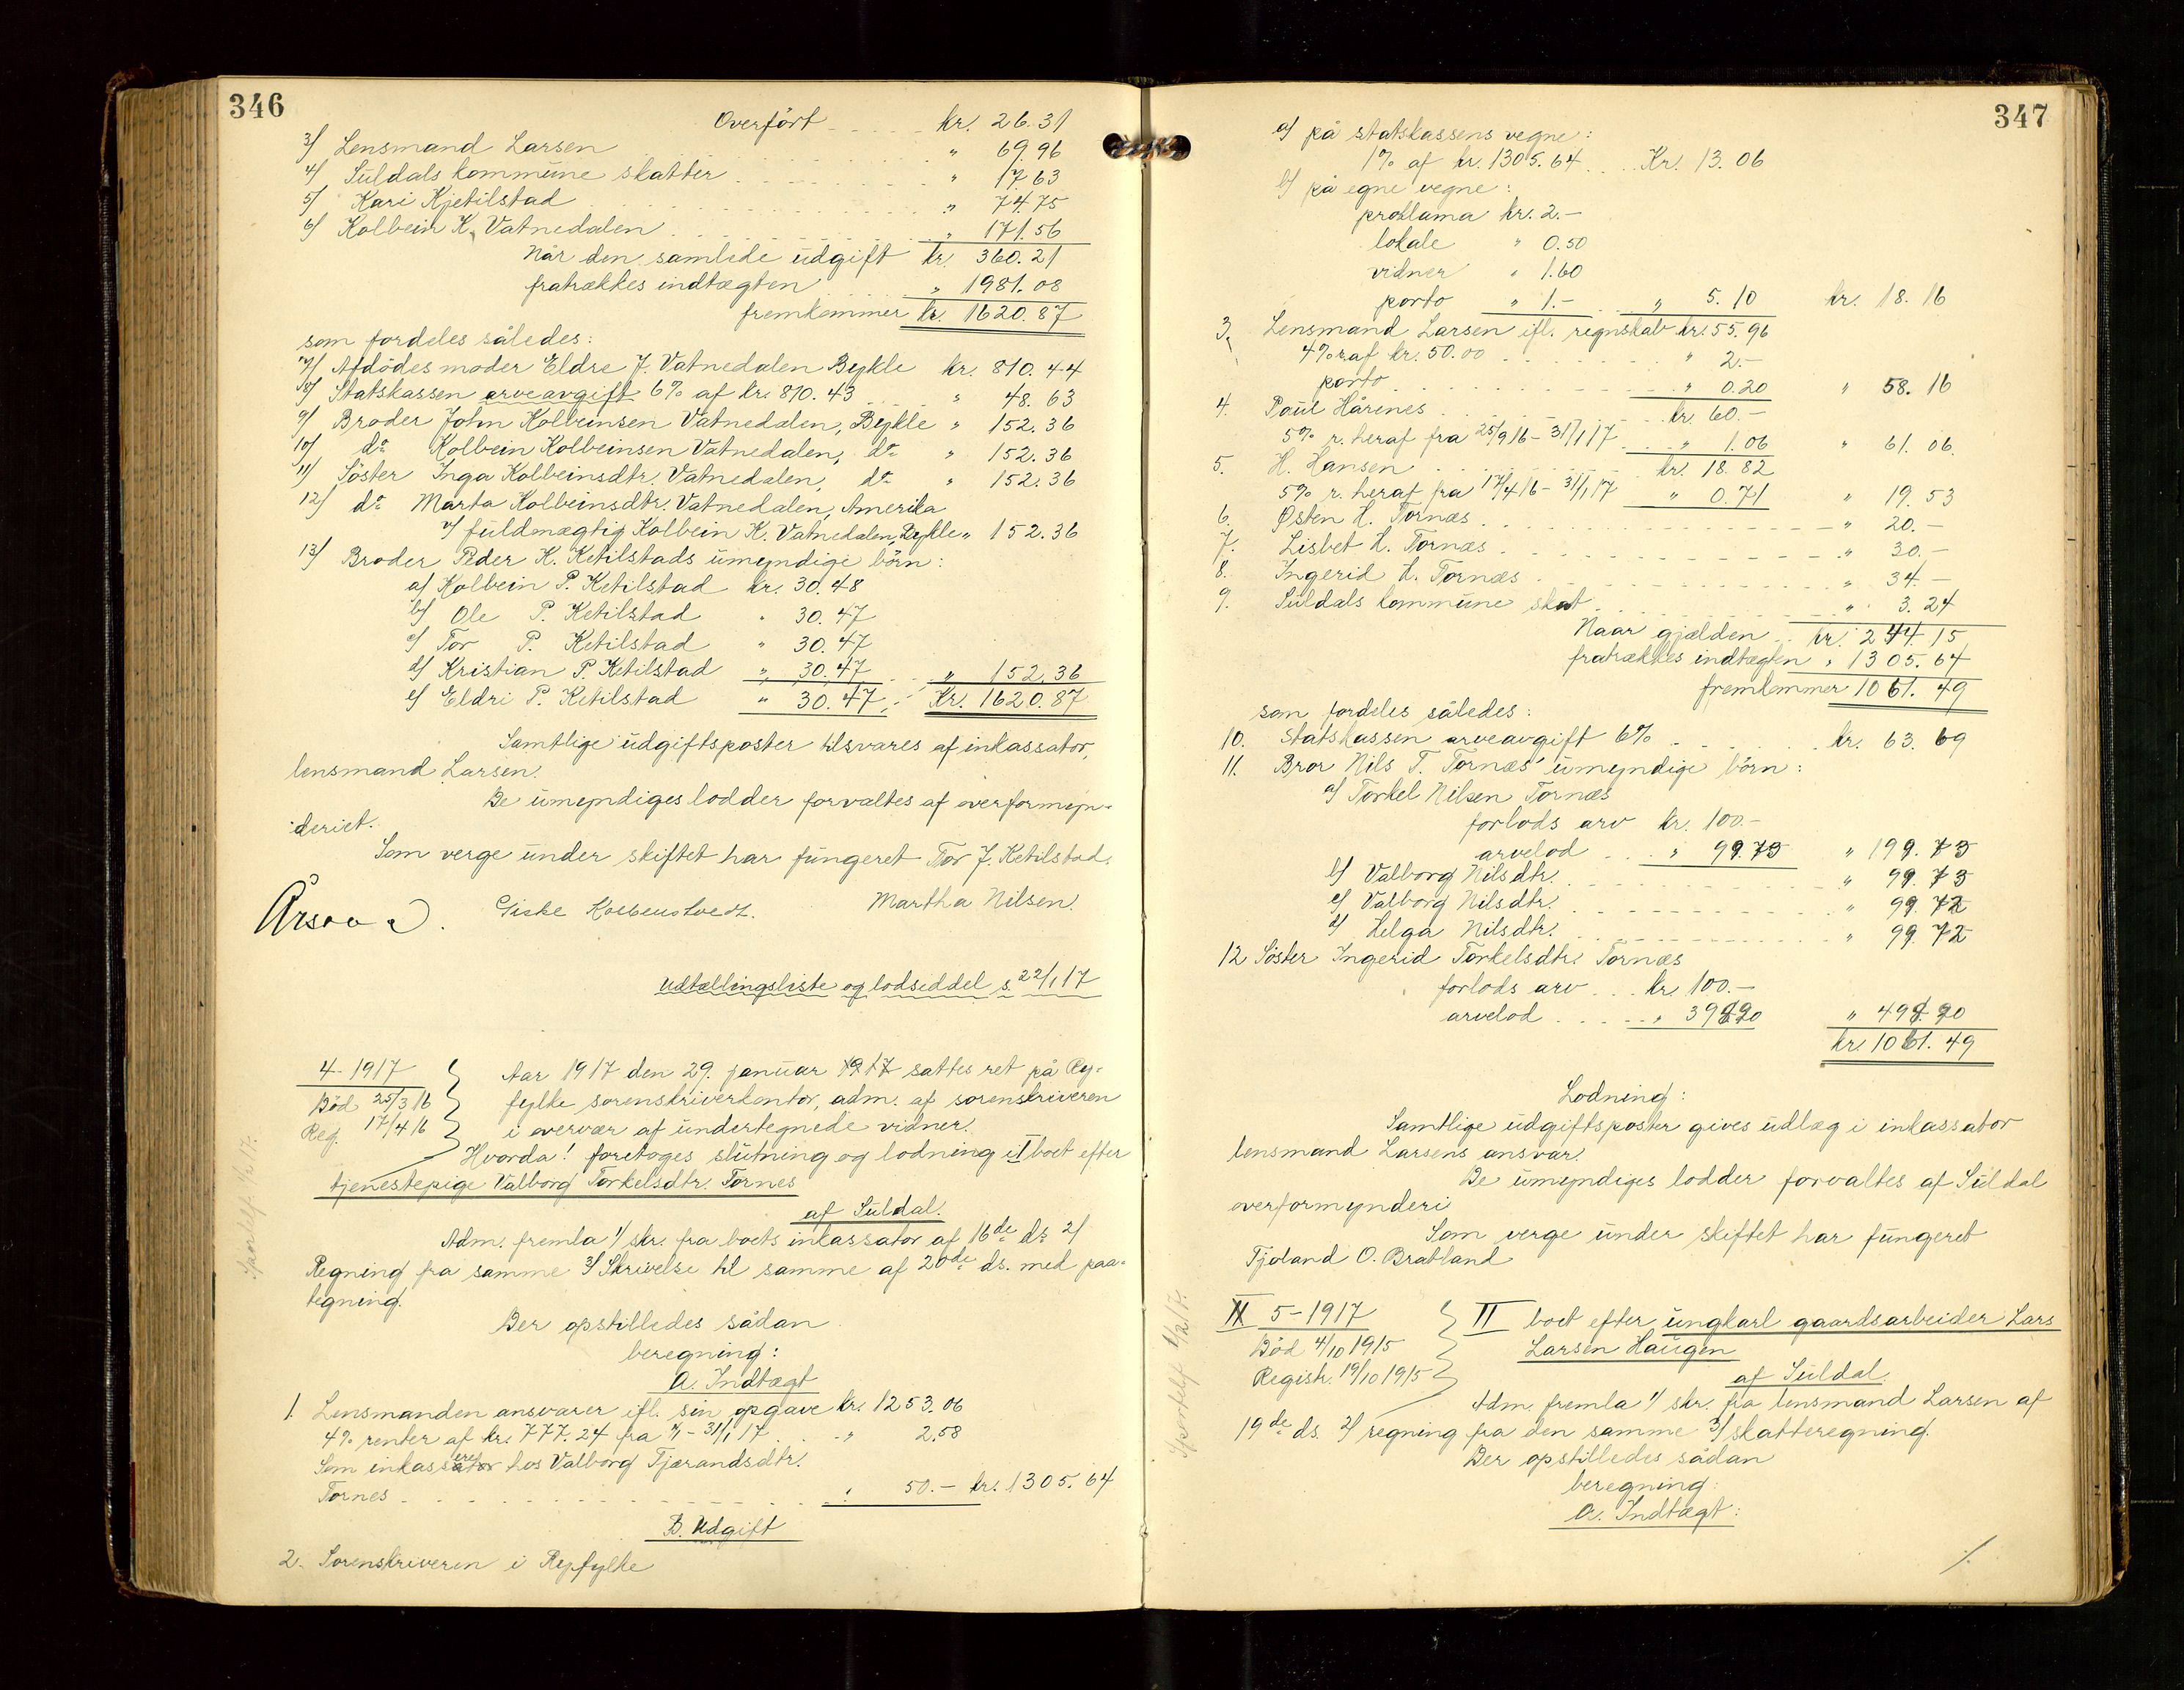 346
Overført kr. 26.31
3/ Lensmand Larsen " 69.96
4/ Suldals kommune skatter " 17.63
5/ Kari Kjetilstad " 74.75
6/ Kolbein K. Vatnedalen " 171.56
Når den samlede udgift kr. 360.21
fratrækkes indtægten " 1981.08
fremkommer kr. 1620.87
som fordeles således:
7/ Afdödes moder Eldre J. Vatnedalen Bykle kr. 810.44
8/ Statskassen arveavgift 6% af kr. 810.43 " 48.63
9/ Broder John Kolbeinsen Vatnedalen, Bykle " 152.36
10/ do Kolbein Kolbeinsen Vatnedalen, do " 152.36
11/ Söster Inga Kolbeinsdtr. Vatnedalen, do " 152.36
12/ do Marta Kolbeinsdtr. Vatnedalen, Amerika
v/ fuldmægtig Kolbein K. Vatnedalen, Bykle " 152.36
13/ Broder Peder K. Ketilstads umyndige börn:
a/ Kolbein P. Ketilstad kr. 30.48
b/ Ole P. Ketilstad " 30.47
c/ Tor P. Ketilstad " 30.47
d/ Kristian P. Ketilstad " 30.47 " 152.36
e/ Eldri P. Ketilstad " 30.47 Kr. 1620.87
Samtlige udgiftsposter tilsvares af inkassator,
lensmand Larsen.
De umyndiges lodder forvaltes af overformyn-
deriet.
Som verge under skiftet har fungeret Tor J. Ketilstad.
Martha Nilsen.
Udtællingsliste og lodseddel s. 22/1 17
4-1917
Död 25/3 16
Reg. 17/4 16
Aar 1917 den 29. januar 1917 sattes ret på Ry-
fylke sorenskriverkontor, adm. af sorenskriveren
i overvær af undertegnede vidner.
Hvorda! foretoges slutning og lodning i I boet efter
tjenestepige Valborg Torkelsdtr. Tornes
af Suldal.
Adm. fremla 1/ skr. fra boets inkassator af 16de ds 2/
Regning fra samme 3/ Skrivelse til samme af 20de ds. med paa-
tegning.
Der opstilledes sådan
beregning:
A. Indtægt
1. Lensmanden ansvarer ifl. sin opgave kr. 1253.06
4% renter af kr. 777.24 fra 1/1 - 31/1 17 " 2.58
Som inkasseret hos Valborg Tjerandsdtr.
Tornes " 50.- kr. 1305.64
B. Udgift
2. Sorenskriveren i Ryfylke
347
a/ på statskassens vegne:
1% af kr. 1305.64 Kr. 13.06
b/ på egne vegne:
proklama kr. 2.-
lokale " 0.50
vidner " 1.60
porto " 1.- " 5.10 kr. 18.16
3. Lensmand Larsen ifl. regnskab kr. 55.96
4% r. af kr. 50.00 " 2.-
porto " 0.20 " 58.16
4. Paul Hårines kr. 60.-
5% r. heraf fra 25/9 16 - 31/1 17 " 1.06 " 61.06.
5. H. Hansen kr. 18.82
5% r. heraf fra 17/4 16 - 31/1 17 " 0.71 " 19.53
6. Østen H. Tornæs " 20.-
7. Lisbet L. Tornæs " 30.-
8. Ingerid L. Tornæs " 34.-
9. Suldals kommune skat " 3.24
Naar gjælden kr. 244.15
fratrækkes indtægten " 1305.64
fremkommer 1061.49
som fordeles således:
10. Statskassen arveavgift 6% kr. 63.69
11. Bror Nils T. Tornæs' umyndige börn:
a/ Torkel Nilsen Tornæs
forlods arv kr. 100.-
arvelod " 99.73 " 199.73
b/ Valborg Nilsdtr. " 99.73
c/ Valborg Nilsdtr. " 99.72
d/ Helga Nilsdtr. " 99.72
12 Söster Ingerid Torkelsdtr. Tornæs
forlods arv kr. 100.-
arvelod " 398.90 " 498.90
kr. 1061.49
Lodning:
Samtlige udgiftsposter gives udlæg i inkassator
lensmand Larsens ansvar.
De umyndiges lodder forvaltes af Suldal
overformynderi
Som verge under skiftet har fungeret
Tjoland O. Bratland
II 5-1917
Död 4/10 1915
Registr. 19/10 1915
II boet efter ungkarl gaardsarbeider Lars
Larsen Haugen
af Suldal.
Adm. fremla 1/ skr. fra lensmand Larsen af
19de ds. 2/ regning fra den samme 3/ skatteregning.
Der opstilledes sådan
beregning:
A. Indtægt: